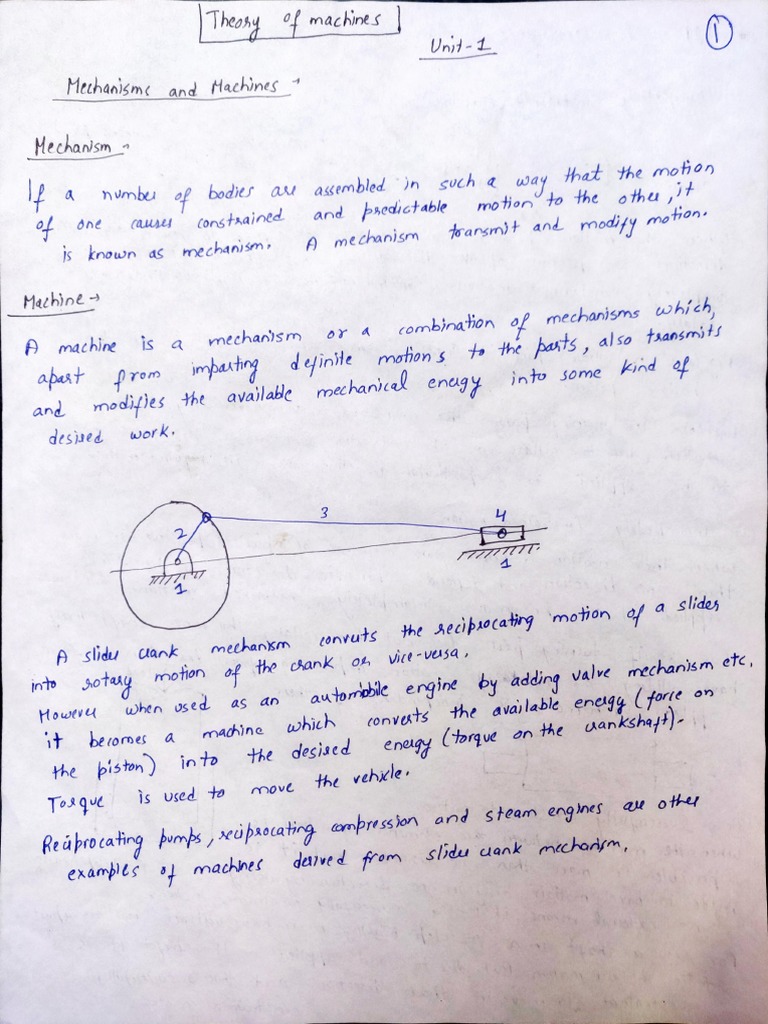 Theory of machines
1
Unit-1
Mechanisms and Machines
Mechanism →
If a number of bodies are assembled in such a way that the motion
of one causes constrained and predictable motion to the other, it
is known as mechanism. A mechanism transmit and modify motion.
Machine →
A machine is a mechanism or a combination of mechanisms which,
apart from imparting definite motions to the parts, also transmits
and modifies the available mechanical energy into some kind of
desired work.
2 3 4
1 1
A slider crank mechanism converts the reciprocating motion of a slider
into rotary motion of the crank or vice-versa.
However when used as an automobile engine by adding valve mechanism etc.
it becomes a machine which converts the available energy (force on
the piston) into the desired energy (torque on the crankshaft).
Torque is used to move the vehicle.
Reciprocating pumps, reciprocating compression and steam engines are other
examples of machines derived from slider crank mechanism.